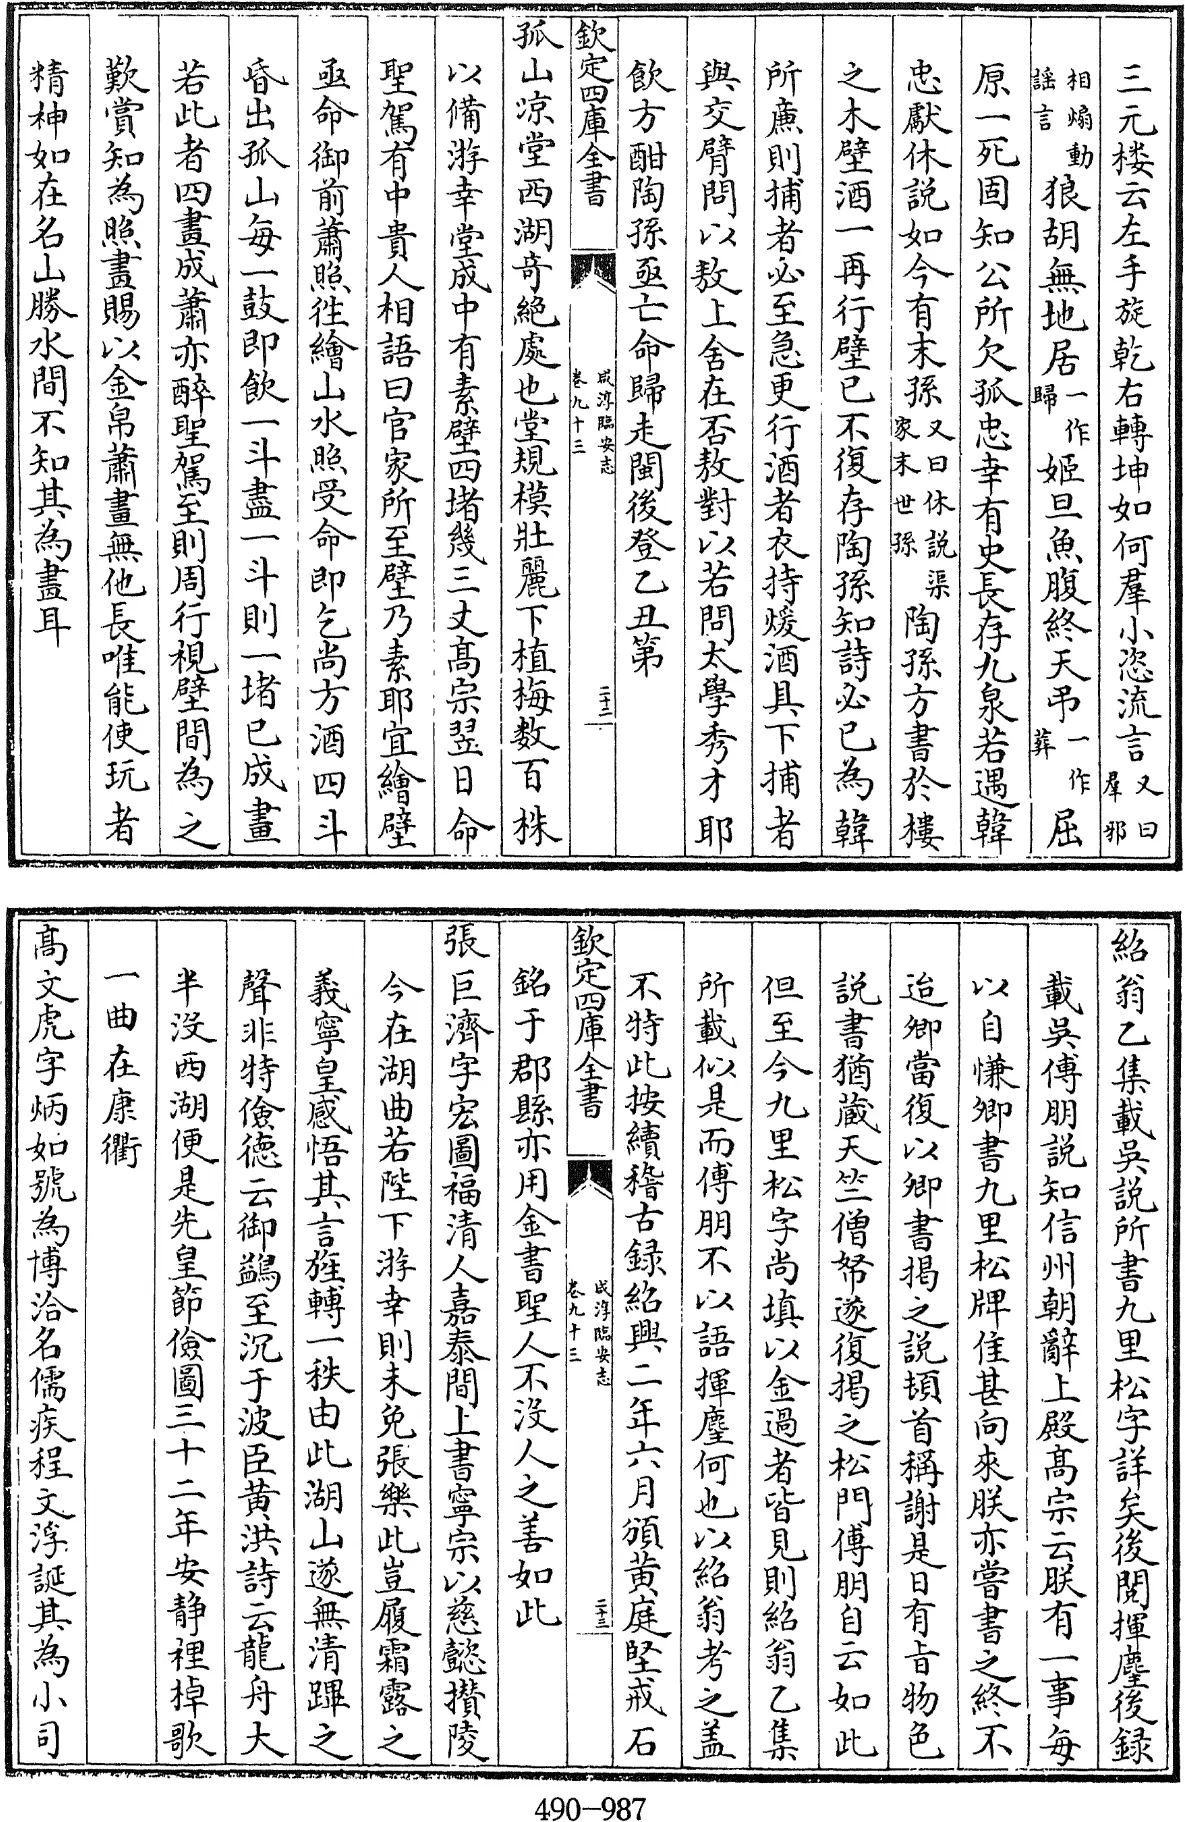 三元楼云左手旋乾右轉坤如何羣小恣流言又曰羣邪
相煽動謡言狼胡無地居一作歸姬旦魚腹終天弔一作葬屈
原一死固知公所欠孤忠幸有史長存九泉若遇韓
忠獻休説如今有末孫又曰休説渠家末世孫陶孫方書於樓
之木壁酒一再行壁已不復存陶孫知詩必已為韓
所廉則捕者必至急更行酒者衣持煖酒具下捕者
與交臂問以敖上舍在否敖對以若問太學秀才耶
飲方酣陶孫亟亡命歸走閩後登乙丑第
欽定四庫全書
咸淳臨安志
卷九十三
二十二
孤山凉堂西湖奇絶處也堂規模壯麗下植梅数百株
以備游幸堂成中有素壁四堵幾三丈高宗翌日命
聖駕有中貴人相語曰官家所至壁乃素耶宜繪壁
亟命御前蕭照徃繪山水照受命即乞尚方酒四斗
昏出孤山每一鼓即飲一斗盡一斗則一堵已成畫
若此者四畫成蕭亦醉聖駕至則周行視壁間為之
歎賞知為照畫賜以金帛蕭畫無他長唯能使玩者
精神如在名山勝水間不知其為畫耳
紹翁乙集載吳説所書九里松字詳矣後閲揮麈後録
載吳傅朋説知信州朝辭上殿高宗云朕有一事每
以自慊卿書九里松牌佳甚向來朕亦嘗書之終不
迨卿當復以卿書揭之説頓首稱謝是日有旨物色
説書猶蔵天竺僧帑遂復揭之松門傅朋自云如此
但至今九里松字尚填以金過者皆見則紹翁乙集
所載似是而傅朋不以語揮麈何也以紹翁考之盖
不特此按續稽古録紹興二年六月頒黄庭堅戒石
欽定四庫全書
咸淳臨安志
卷九十三
二十三
銘于郡縣亦用金書聖人不没人之善如此
張巨濟字宏圖福清人嘉泰間上書寧宗以慈懿攢陵
今在湖曲若陛下游幸則未免張樂此豈履霜露之
義寧皇感悟其言旌轉一秩由此湖山遂無清蹕之
聲非特儉徳云御鷁至沉于波臣黄洪詩云龍舟大
半没西湖便是先皇節儉圖三十二年安静裡棹歌
一曲在康衢
高文虎字炳如號為博洽名儒疾程文浮誕其為小司
490-987